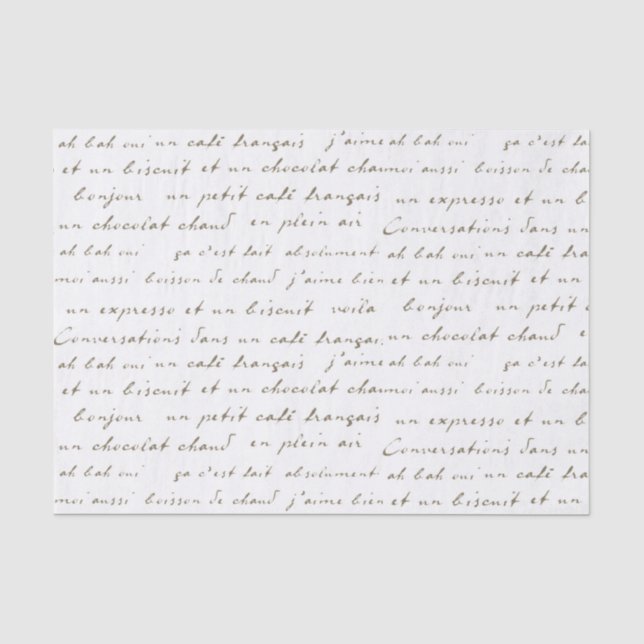 ah bah oui un café français j'aime ah bah oui ça c'est fait
et un biscuit et un chocolat chaumoi aussi boisson de cha
bonjour un petit café français un expresso et un b
un chocolat chaud en plein air Conversations dans un
ah bah oui ça c'est fait absolument ah bah oui un café fra
moi aussi boisson de chaud j'aime bien et un biscuit et un
un expresso et un biscuit voila bonjour un petit c
Conversations dans un café français un chocolat chaud e
ah bah oui un café français j'aime ah bah oui ça c'est fait
et un biscuit et un chocolat chaumoi aussi boisson de cha
bonjour un petit café français un expresso et un b
un chocolat chaud en plein air Conversations dans un
ah bah oui ça c'est fait absolument ah bah oui un café fra
moi aussi boisson de chaud j'aime bien et un biscuit et un